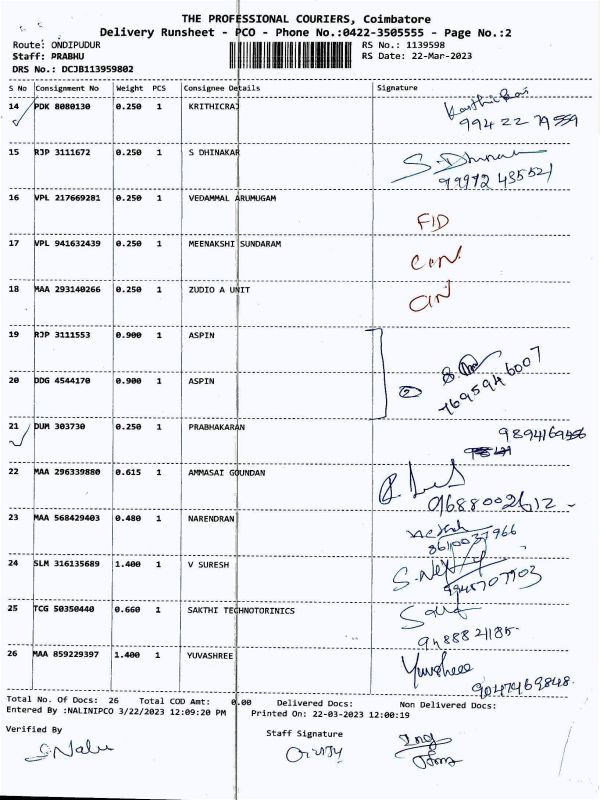 THE PROFESSIONAL COURIERS, Coimbatore
Delivery Runsheet - PCO - Phone No.:0422-3505555 - Page No.:2
Route: ONDIPUDUR RS No.: 1139598
Staff: PRABHU RS Date: 22-Mar-2023
DRS No.: DCJB113959802
S No Consignment No Weight PCS Consignee Details Signature
14 PDK 8080130 0.250 1 KRITHICRAJ
994 22 79559
15 RJP 3111672 0.250 1 S DHINAKAR S. Dhinakar
99972 435521
16 VPL 217669281 0.250 1 VEDAMMAL ARUMUGAM
17 VPL 941632439 0.250 1 MEENAKSHI SUNDARAM
18 MAA 293140266 0.250 1 ZUDIO A UNIT
19 RJP 3111553 0.900 1 ASPIN
20 DDG 4544170 0.900 1 ASPIN 2 7695946007
21 DUM 303730 0.250 1 PRABHAKARAN 9894169456
22 MAA 296339880 0.615 1 AMMASAI GOUNDAN
9688002612
23 MAA 568429403 0.480 1 NARENDRAN
8610037966
24 SLM 316135689 1.400 1 V SURESH
25 TCG 50350440 0.660 1 SAKTHI TECHNOTORINICS
26 MAA 859229397 1.400 1 YUVASHREE Yuvashree
9047469848
Total No. Of Docs: 26 Total COD Amt: 0.00 Delivered Docs: Non Delivered Docs:
Entered By :NALINIPCO 3/22/2023 12:09:20 PM Printed On: 22-03-2023 12:00:19
Verified By Staff Signature